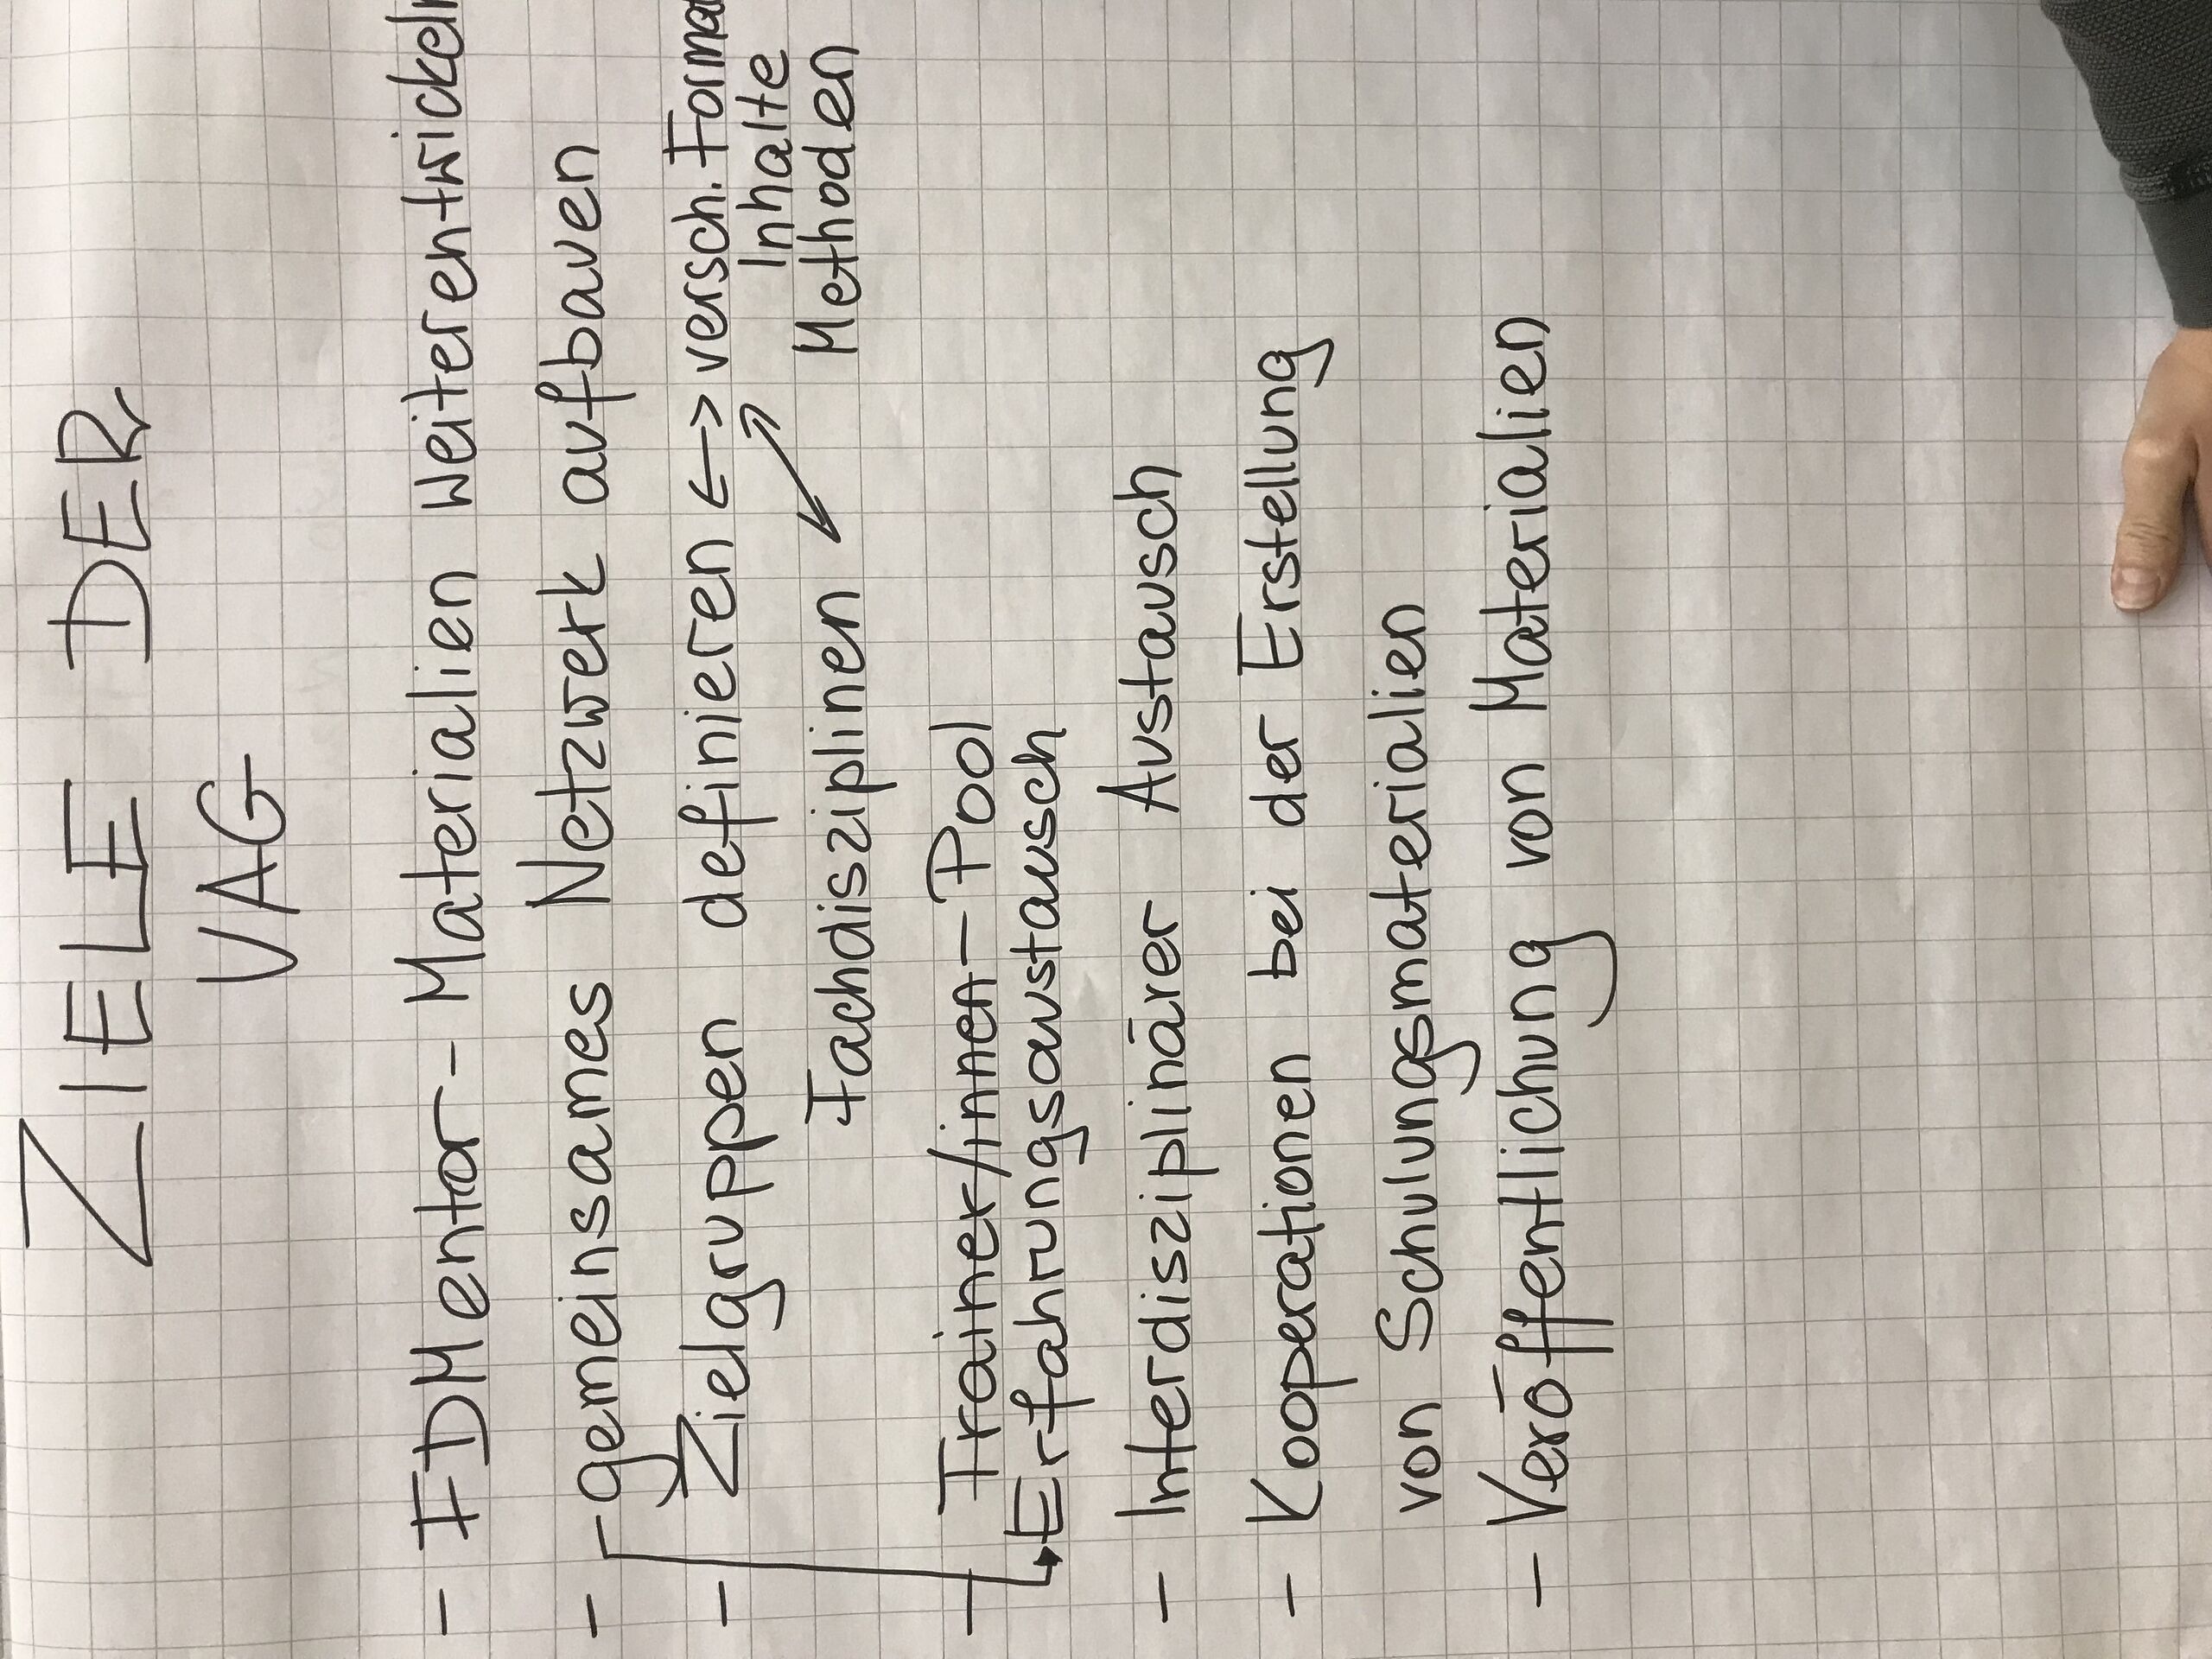 ZIELE DER
VAG
- FDMentor-Materialien weiterentwickeln
- gemeinsames Netzwerk aufbauen
- Zielgruppen definieren <-> versch. Format
Inhalte
Methoden
Fachdisziplinen
- Trainer/innen-Pool
Erfahrungsaustausch
- Interdisziplinärer Austausch
- Kooperationen bei der Erstellung
von Schulungsmaterialien
- Veröffentlichung von Materialien